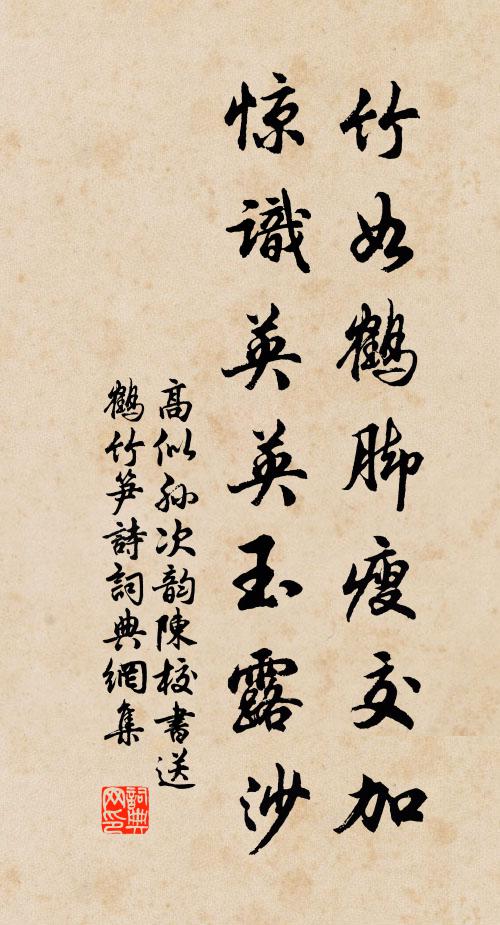 竹如鶴脚瘦交加
惊識英英玉露沙
高似孙次韵陳校書送
鶴竹笋詩詞典網集
詞典网印